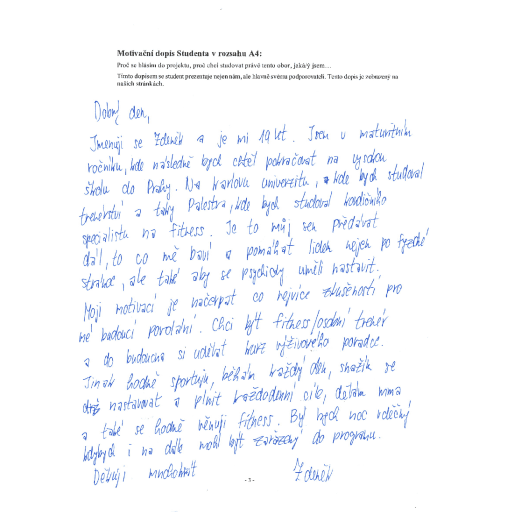 Motivační dopis Studenta v rozsahu A4:
Proč se hlásím do projektu, proč chci studovat právě tento obor, jaká/ý jsem…
Tímto dopisem se student prezentuje nejen nám, ale hlavně svému podporovateli. Tento dopis je zobrazený na
našich stránkách.
Dobrý den,
Jmenuji se Zdeněk a je mi 19 let. Jsem v maturitním
ročníku, kde následně bych chtěl pokračovat na vysokou
školu do Prahy. Na Karlovu univerzitu, kde bych studoval
trenérství a taky Palestra, kde bych studoval kondičního
specialistu na fitness. Je to můj sen předávat
dál, to co mě baví a pomáhat lidem nejen po fyzické
stránce, ale také aby se psychicky uměli nastavit.
Moji motivací je načerpat co nejvíce zkušeností pro
mé budoucí povolání. Chci být fitness/osobní trenér
a do budoucna si udělat kurz výživového poradce.
Jinak hodně sportuju, běhám každý den, snažím se
nastavovat a plnit každodenní cíle, dělám mma
a také se hodně věnuji fitness. Byl bych moc vděčný
kdybych i na dále mohl být zařazený do programu.
Děkuji mnohokrát Zdeněk
- 3 -